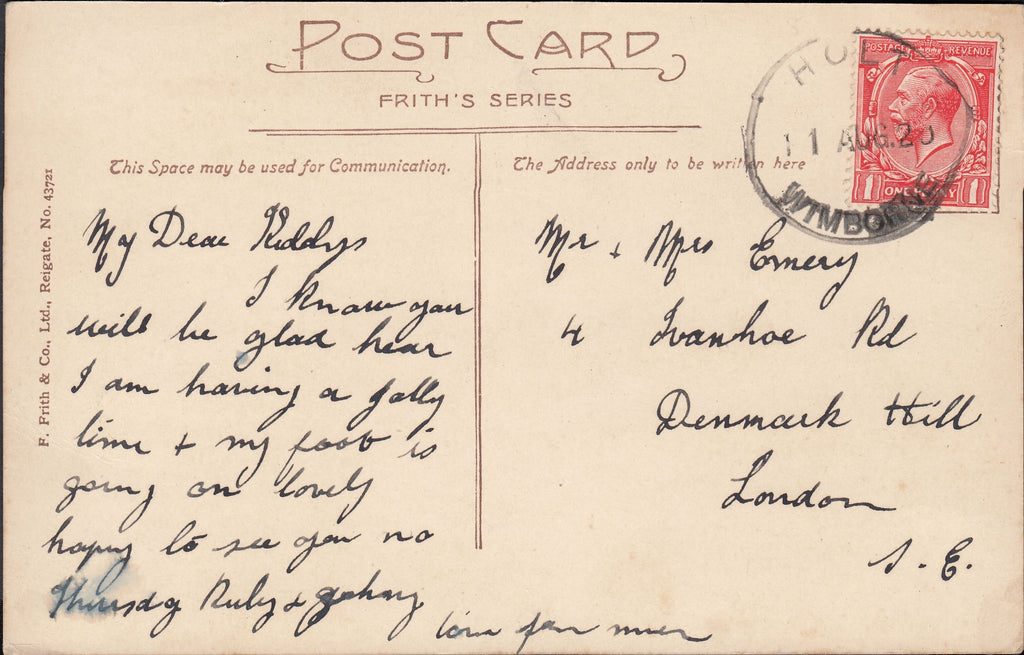 POST CARD
FRITH'S SERIES
This Space may be used for Communication.
The Address only to be written here
F. Frith & Co., Ltd., Reigate, No. 43721
HOLT
11 AUG. 20
WIMBORNE
POSTAGE REVENUE
1 ONE PENNY 1
My Dear Kiddys
I know you
will be glad hear
I am having a jolly
time + my foot is
going on lovely
hoping to see you no
Thursday Ruby & Johny
love from
Mr + Mrs Emery
4 Ivanhoe Rd
Denmark Hill
London
S. E.